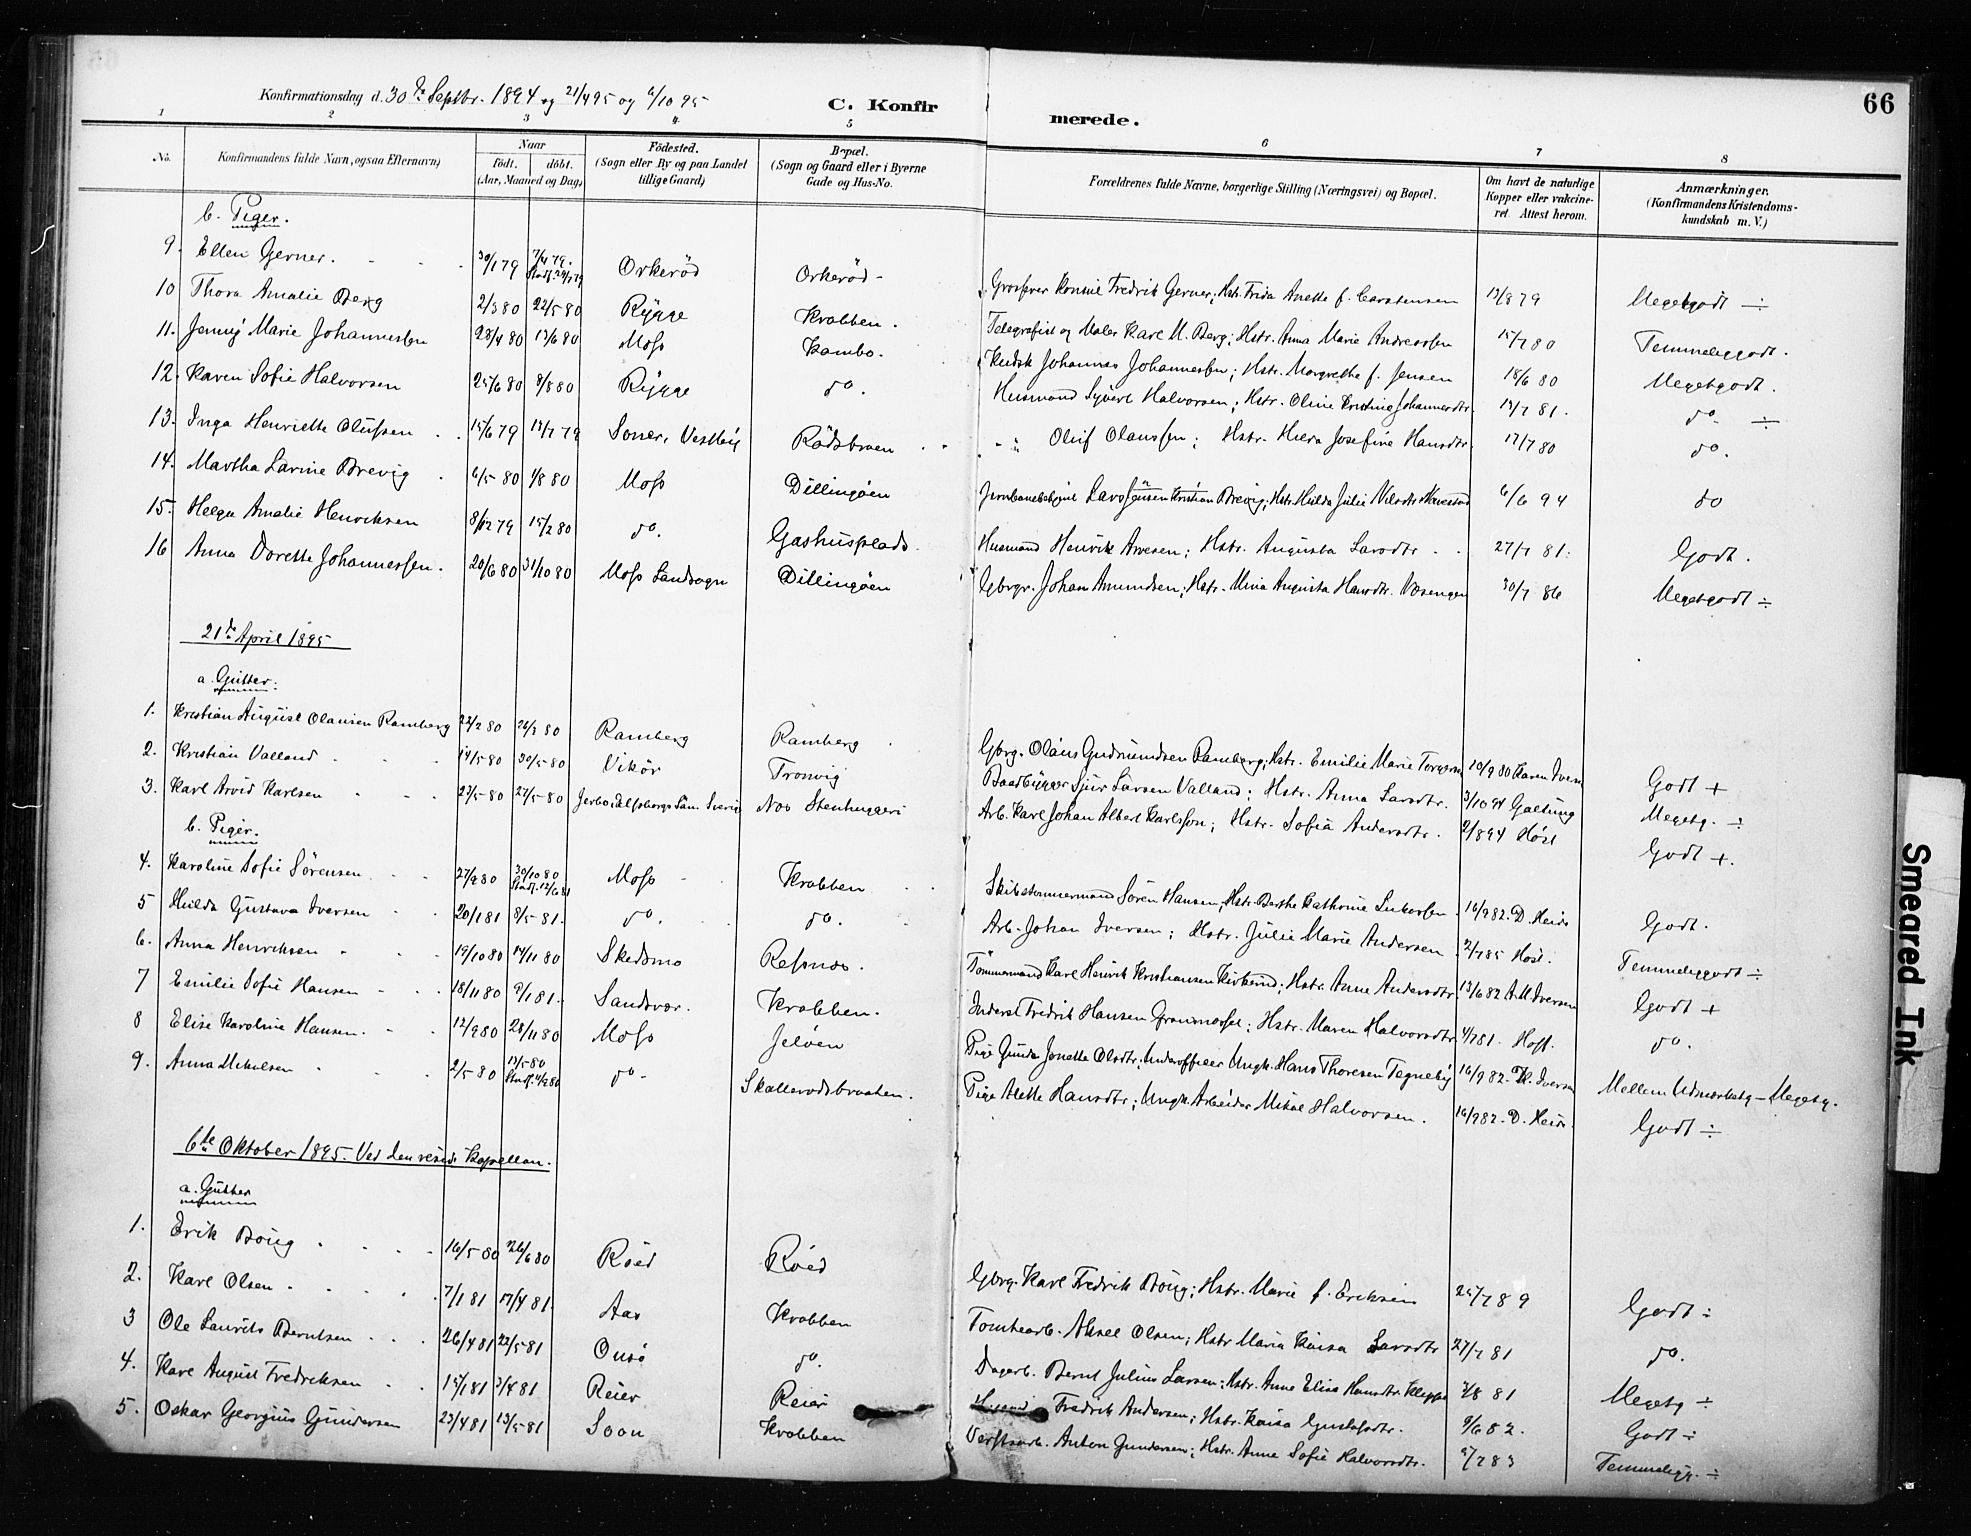 66
Konfirmationsdag d. 30te Septbr. 1894 og 21/4 95 og 6/10 95
C. Konfirmerede.
1 2 3 4 5 6 7 8
No. Konfirmandens fulde Navn, ogsaa Efternavn) Naar födt. döbt. (Aar, Maaned og Dag) Födested. (Sogn eller By og paa Landet tillige Gaard) Bopæl. (Sogn og Gaard eller i Byerne Gade og Hus-No. Forældrenes fulde Navne, borgerlige Stilling (Næringsvei) og Bopæl. Om havt de naturlige Kopper eller vakcineret. Attest herom. Anmærkninger. (Konfirmandens Kristendomskundskab m. V.)
b. Piger.
9. Ellen Gerner. 30/1 79 Orkeröd Orkeröd Grosserer Konsul Fredrik Gerner; Hstr. Frida Anette f. Carstensen 13/8 79 Megetgodt ÷
10 Thora Amalie Berg 2/3 80 22/5 80 Rygge Krabben. Telegrafist og Maler Karl M. Berg; Hstr. Anna Marie Andreassen 15/7 80 Temmeliggodt.
11. Jenny Marie Johannessen 28/4 80 13/6 80 Moss Kambo. Kudsk Johannes Johannessen; Hstr. Margrethe f. Jensen 18/6 80 Megetgodt.
12. Karen Sofie Halvorsen 25/6 80 8/8 80 Rygge do. Husmand Syvert Halvorsen; Hstr. Oline Kristine Johannesdtr. 13/7 81. do. ÷
13. Inga Henriette Olufsen 15/6 79 13/7 79 Soner, Vestby Rödsbraen Oluf Olaussen; Hstr. Hilda Josefine Hansdtr. 17/7 80 do.
14. Martha Larine Brevig 6/5 80 1/8 80 Moss Dillingöen Lars Jensen Kristian Brevig; Hstr. Hilda Julie 6/6 94 do
15. Helga Amalie Henriksen 8/12 79 15/2 80 do. Gashusplads. Husmand Henrik Arvesen; Hstr. Augusta Larsdtr. 27/7 81. Godt.
16 Anna Dorette Johannessen. 20/6 80 31/10 80 Moss Landsogn Dillingöen Gbrgr. Johan Amundsen; Hstr. Mina Augusta Hansdtr. Væsengen 30/7 86 Megetgodt ÷
21de April 1895
a. Gutter.
1. Kristian August Olausen Ramberg 22/2 80 26/3 80 Ramberg Ramberg Gbrg. Olaus Gudmundsen Ramberg; Hstr. Emilie Marie 10/9 80 Karen Iversen Godt +
2. Kristian Valland 14/5 80 30/5 80 Vikör Tronvig Baadbygger Sjur Larsen Valland; Hstr. Anna Larsdtr. 3/10 94 Galtung Megetg. ÷
3. Karl Arvid Karlsen 27/5 80 27/5 80 Jerbo, Elfsborgs Län. Sverig Noes Stenhuggeri Arb. Karl Johan Albert Karlsson; Hstr. Sofia Andersdtr. 2/8 94 Höst Godt +.
b. Piger.
4. Karoline Sofie Sörensen 27/9 80 30/10 80 Moss Krabben Skibstömmermand Sören Hansen, Hstr. Berthe Kathrine 16/9 82. D. Heide Godt.
5 Hilda Gustava Iversen 20/1 81 8/5 81. do. do. Arb. Johan Iversen; Hstr. Julie Marie Andersen 2/7 85 Höst. Temmeliggodt ÷
6. Anna Henriksen 19/10 80 14/11 80 Skedsmo Refsnes. Tömmermand Karl Henrik Kristiansen Kirkerud; Hstr. Anne Andersdtr. 13/6 82 A.M. Iversen Godt +
7 Emilie Sofie Hansen 18/11 80 9/1 81. Sandsvær. Krabben. Inderst Fredrik Hansen; Hstr. Maren Halvorsdtr. 4/7 81. Höst. do.
8 Elise Karoline Hansen. 12/9 80 28/11 80 Moss Jelöen Pige Gunda Jonette Olsdtr; Underofficer Ungk. Hans Thoresen Tegneby 16/9 82. K. Iversen Mellem Udmærketg – Megetg.
9. Anna Mikalsen 2/5 80 13/5 80 do. Skallerödsbraaten. Pige Alette Hansdtr; Ungk. Arbeider Mikal Halvorsen. 16/9 82. D. Heide. Godt ÷
6te Oktober 1895. Ved den resid. Kapellan.
a. Gutter
1. Erik Boug 16/5 80 26/6 80 Röed Röed Gbrg. Karl Fredrik Boug; Hstr. Marie f. Eriksen 25/7 89 Godt ÷
2. Karl Olsen 7/1 81 17/4 81. Aas Krabben Tomtearb. Aksel Olsen; Hstr. Maria Kaisa Larsdtr 27/7 81 do.
3 Ole Laurits Berntsen 26/4 81 22/5 81 Onsö do. Dagarb. Bernt Julius Larsen; Hstr. Anne Elise Hansdtr. Kleppe 3/8 81 Megetg ÷
4. Karl August Fredriksen 15/1 81 3/4 81 Reier Reier Fredrik Andersen; Hstr. Kaisa Gustafsdtr. 9/6 82. Godt ÷
5. Oskar Georgius Gundersen 23/4 81 13/5 81 Soon Krabben Verftsarb. Anton Gundersen; Hstr. Anne Sofie Halvorsdtr. Temmeligg. ÷
Smeared Ink